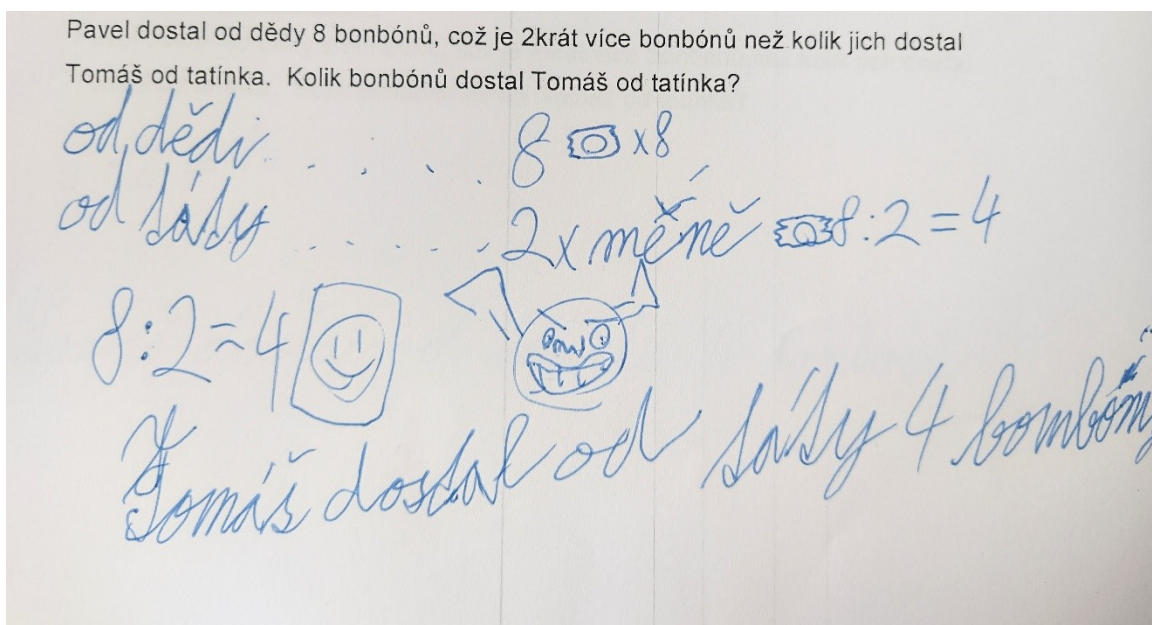 Pavel dostal od dědy 8 bonbónů, což je 2krát více bonbónů než kolik jich dostal
Tomáš od tatínka. Kolik bonbónů dostal Tomáš od tatínka?
od dědi . . . . . 8 x8
od táty . . . . . 2x méně 8:2=4
8:2=4
Tomáš dostal od táty 4 bombóny